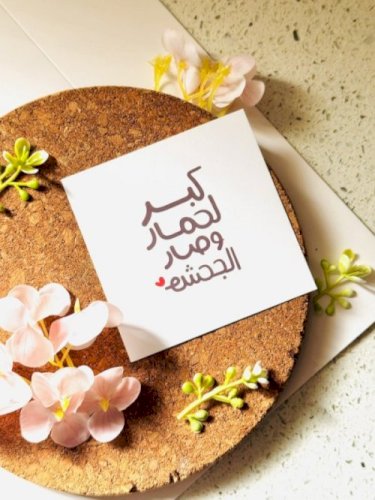 كبر
لحمار
وصار
الجحش